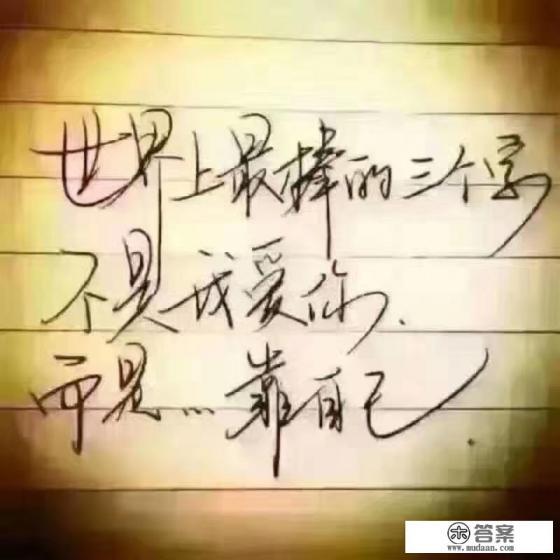 世界上最棒的三个字
不是我爱你.
而是...靠自己.
答案
www.mudaan.com